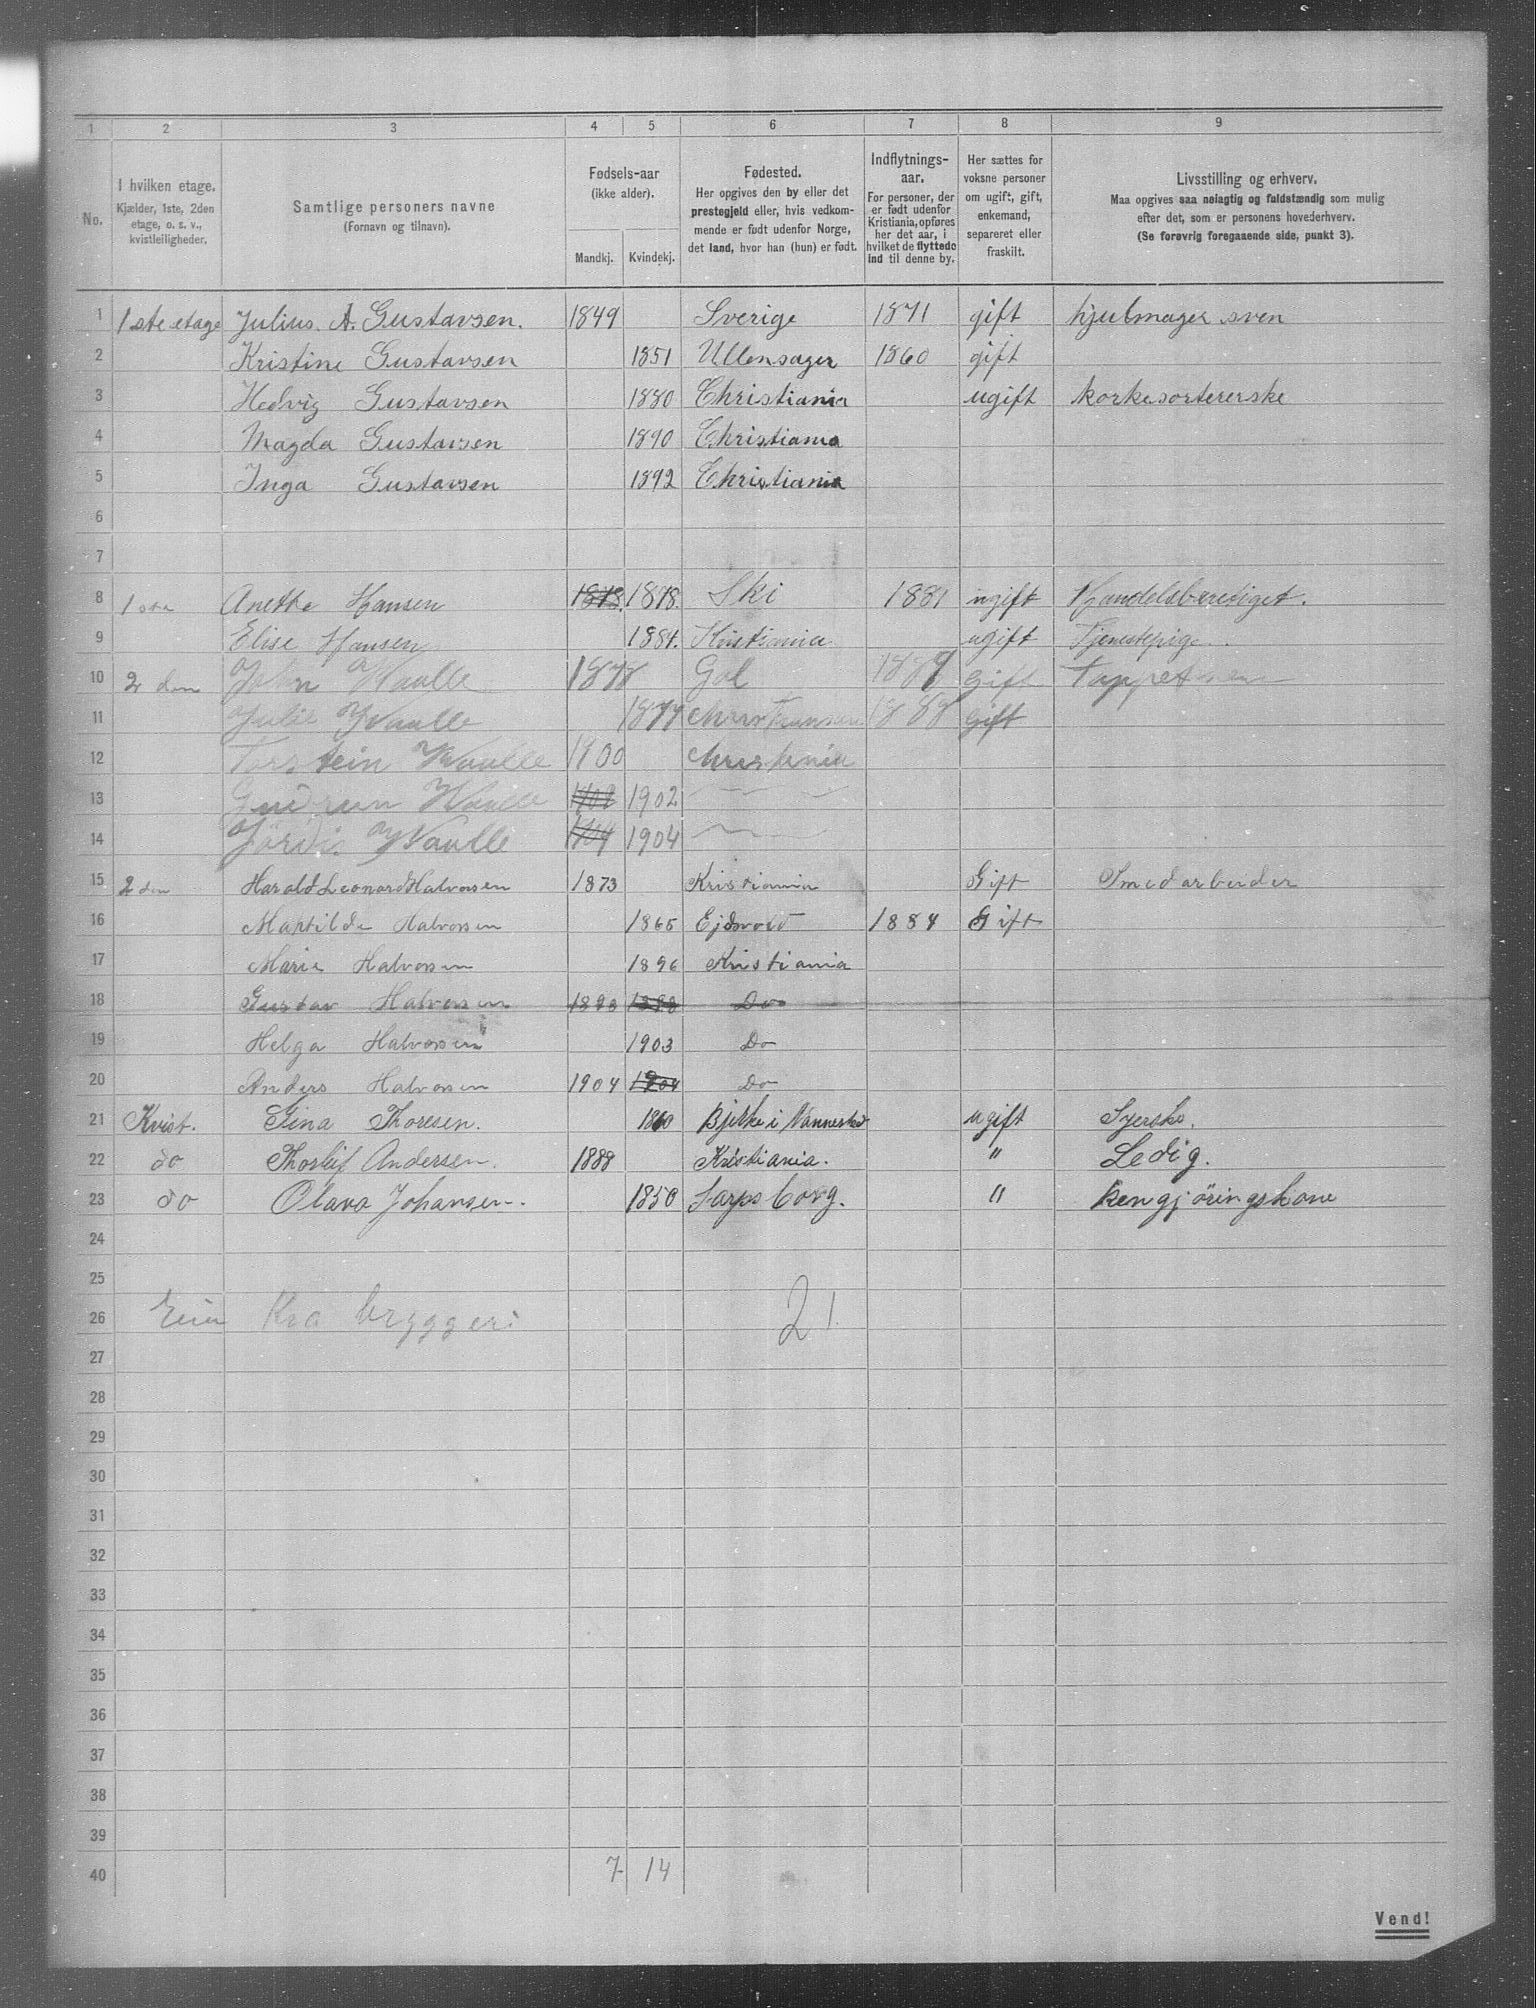 1 2 3 4 5 6 7 8 9
No. I hvilken etage. Kjælder, 1ste, 2den etage, o. s. v., kvistleiligheder. Samtlige personers navne (Fornavn og tilnavn). Fødsels-aar (ikke alder). Mandkj. Kvindekj. Fødested. Her opgives den by eller det prestegjeld eller, hvis vedkommende er født udenfor Norge, det land, hvor han (hun) er født. Indflytnings-aar. For personer, der er født udenfor Kristiania, opføres her det aar, i hvilket de flyttede ind til denne by. Her sættes for voksne personer om ugift, gift, enkemand, separeret eller fraskilt. Livsstilling og erhverv. Maa opgives saa nøiagtig og fuldstændig som mulig efter det, som er personens hovederhverv. (Se forøvrig foregaaende side, punkt 3).
1 1ste etage Julius. A. Gustavsen. 1849 Sverige 1871 gift hjulmager sven
2 Kristine Gustavsen 1851 Ullensager 1860 gift
3 Hedvig Gustavsen 1880 Christiania ugift korkesortererske
4 Magda Gustavsen 1890 Christiania
5 Inga Gustavsen 1892 Christiania
6
7
8 1ste Anethe Hansen 1878. 1878. Ski 1881 ugift Handelsberetiget.
9 Elise Hansen 1884. Kristiania ugift Tjenestepige.
10 2 den John Waulle 1878 Gol 1889 gift
11 Julie Waulle 1877 1888 gift
12 Torstein Waulle 1900 Christiania
13 Gudrun Waulle 1902 1902
14 Jørdis Waulle 1904 1904
15 2 den Harald Leonard Halvorsen 1873 Kristiania Gift Smedarbeider
16 Martilde Halvorsen 1865 Ejdsvold 1884 Gift
17 Marie Halvorsen 1896 Kristiania
18 Gustav Halvorsen 1898 1898 Do
19 Helga Halvorsen 1903 Do
20 Anders Halvorsen 1904 1904 Do
21 Kvist. Gina Thoresen. 1860 Bjelke i ugift Syerske.
22 do Thorleif Andersen. 1888 Kristiania. " Ledig.
23 do Olava Johansen. 1850 Sarpsborg. " Rengjöringskone
24
25
26 Eier Kra bryggeri 21.
27
28
29
30
31
32
33
34
35
36
37
38
39
40 7 14
Vend!